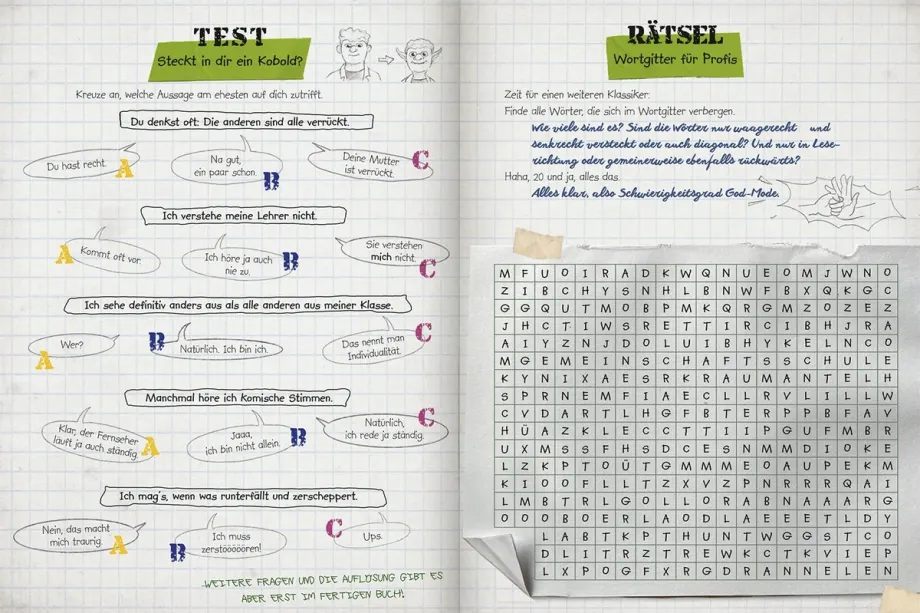 TEST
Steckt in dir ein Kobold?
Kreuze an, welche Aussage am ehesten auf dich zutrifft.
Du denkst oft: Die anderen sind alle verrückt.
Du hast recht.
A
Na gut,
ein paar schon.
B
Deine Mutter
ist verrückt.
C
Ich verstehe meine Lehrer nicht.
A
Kommt oft vor.
Ich höre ja auch
nie zu.
B
Sie verstehen
mich nicht.
C
Ich sehe definitiv anders aus als alle anderen aus meiner Klasse.
Wer?
A
B
Natürlich. Ich bin ich.
Das nennt man
Individualität.
C
Manchmal höre ich komische Stimmen.
Klar, der Fernseher
läuft ja auch ständig.
A
Jaaa,
ich bin nicht allein.
B
Natürlich,
ich rede ja ständig.
C
Ich mag's, wenn was runterfällt und zerscheppert.
Nein, das macht
mich traurig.
A
Ich muss
zerstööööören!
B
C
Ups.
WEITERE FRAGEN UND DIE AUFLÖSUNG GIBT ES
ABER ERST IM FERTIGEN BUCH!
RÄTSEL
Wortgitter für Profis
Zeit für einen weiteren Klassiker:
Finde alle Wörter, die sich im Wortgitter verbergen.
Wie viele sind es? Sind die Wörter nur waagerecht und
senkrecht versteckt oder auch diagonal? Und nur in Lese-
richtung oder gemeinerweise ebenfalls rückwärts?
Haha, 20 und ja, alles das.
Alles klar, also Schwierigkeitsgrad God-Mode.
M F U O I R A D K W Q N U E O M J W N O
Z I B C H Y S N H L B N W F B X Q K G C
G G Q U T M O B P M K Q R G M Z O Z E Z
J H C T I W S R E T T I R C I B H J R A
A I Y Z N J D O L U I B H Y K E L N C O
M G E M E I N S C H A F T S S C H U L E
K Y N I X A E S R K R A U M A N T E L H
S P R N E M F I A E C L L R V L I L L W
C V D A R T L H G F B T E R P P B F A V
H Ü A Z K L E C C T T I I P G U F M B R
U X M S S F H S D C E S N M M D I O K E
L Z K P T O Ü T G M M M E O A U P E K M
K I O O F L L T Z X V Z P N R R R Q A I
L M B T R L G O L L O R A B N A A A R G
O O O B O E R L A O D L A E E E T L D Y
L A B T K P T H U N T W G G S T C O
D L I T R Z T R E W K C T K V I E P
L X P O G F X R G D R A N N E L E N